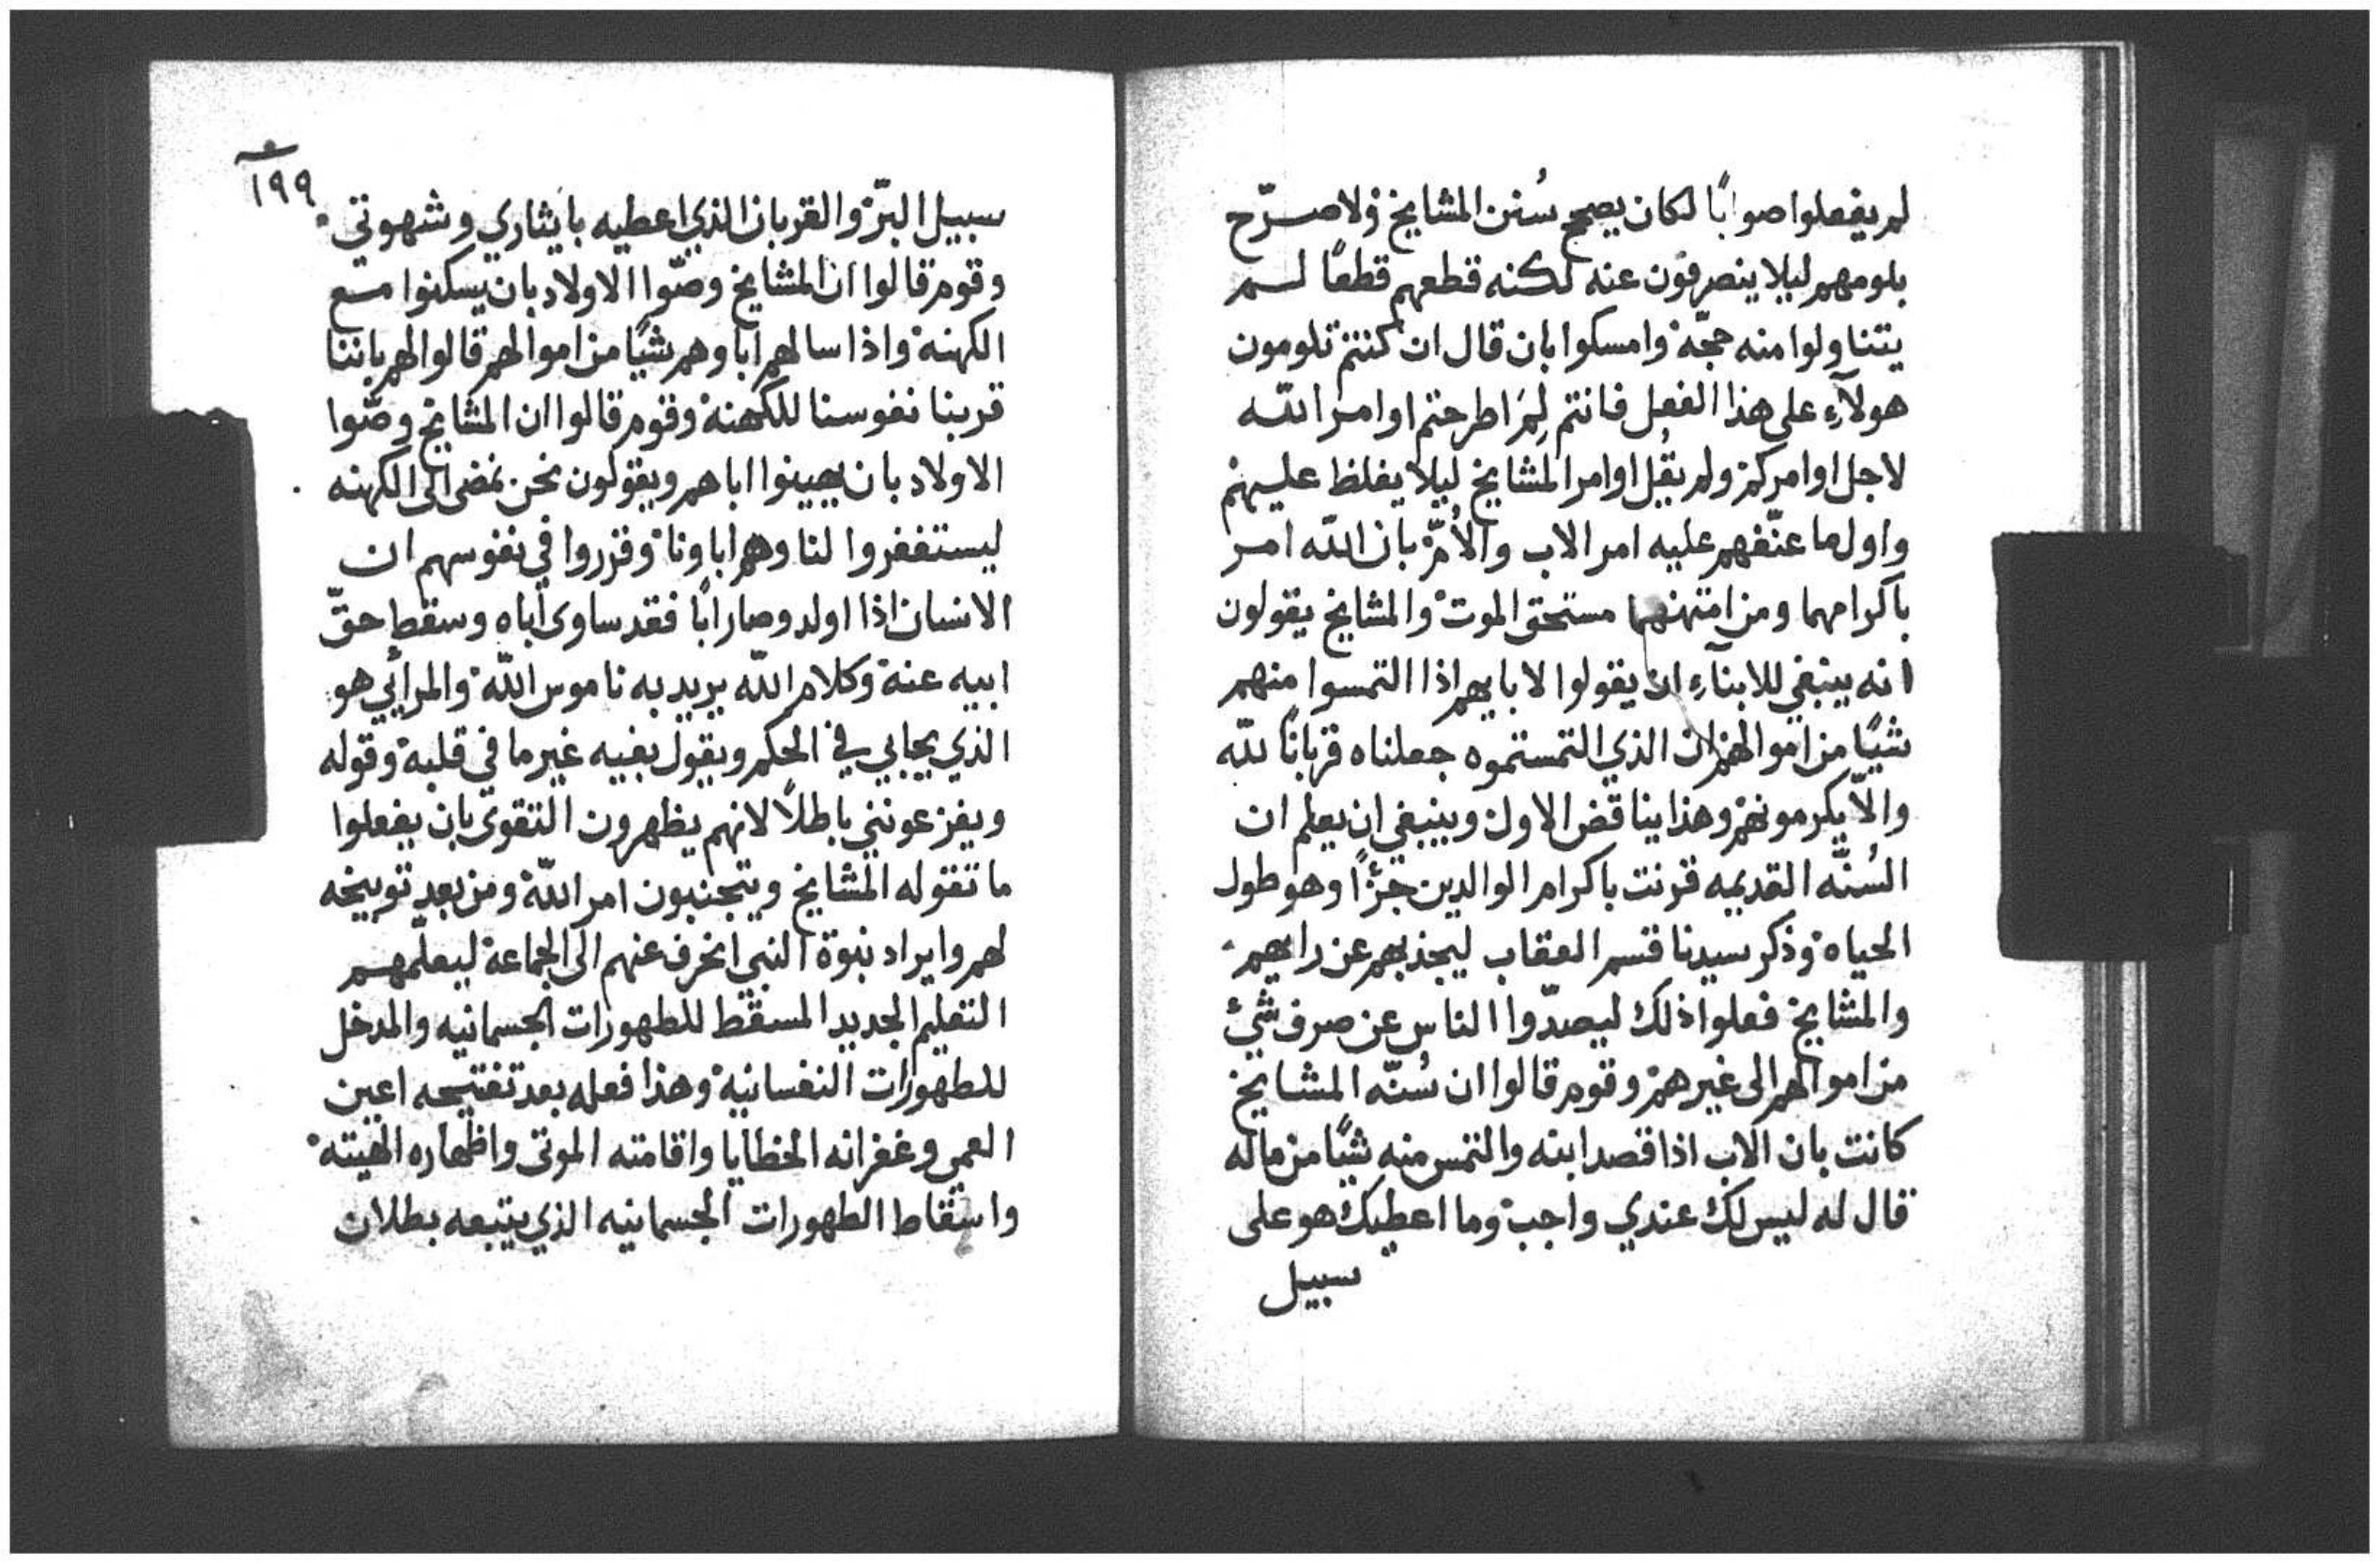 لم يفعلوا صوابًا لكان يصحح سُنن المشايخ ولا صرّح
بلومهم ليلا ينصرفون عنه لكنه قطعهم قطعًا لم
يتناولوا منه حجّة وامسكوا بان قال ان كنتم تلومون
هولآءِ على هذا الفعل فانتم لِمَ اطرحتم اوامر اللّه
لاجل اوامركم ولم يقُل اوامر المشايخ ليلا يغلظ عليهم
واول ما عنّفهم عليه امر الاب والاُمّ بان اللّه امر
باكرامهما ومن امتهنهما مستحق الموت والمشايخ يقولون
انه ينبغي للابنآءِ ان يقولوا لابايهم اذا التمسوا منهم
شيًا من اموالهم ان الذي التمستموه جعلناه قربانًا للّه
والّا يكرمونهم وهذا يناقض الاول وينبغي ان يعلم ان
السُنّه القديمه قرنت باكرام الوالدين جزًا وهو طول
الحياه وذكر سيدنا قسم العقاب ليجذبهم عن رايهم
والمشايخ فعلوا ذلك ليصدّوا الناس عن صرف شئ
من اموالهم الى غيرهم وقوم قالوا ان سُنّه المشايخ
كانت بان الاب اذا قصد ابنه والتمس منه شيًا من ماله
قال له ليس لك عندي واجب وما اعطيك هو على
سبيل
١٩٩
سبيل البرّ والقربان الذي اعطيه بايثاري وشهوتي
وقوم قالوا ان المشايخ وصّوا الاولاد بان يسكنوا مع
الكهنة واذا سالهم اباوهم شيًا من اموالهم قالوا لهم باننا
قربنا نفوسنا للكهنة وقوم قالوا ان المشايخ وصّوا
الاولاد بان يهينوا اباهم ويقولون نحن نمضى الى الكهنه
ليستغفروا لنا وهم اباونا وقرروا في نفوسهم ان
الانسان اذا اولد وصار ابًا فقد ساوى اباه وسقط حقّ
ابيه عنة وكلام اللّه يريد به ناموس اللّة والمرائي هو
الذي يحابي في الحكم ويقول بفيه غير ما في قلبة وقوله
ويفزعونني باطلًا لانهم يظهرون التقوى بان يفعلوا
ما تقوله المشايخ ويتجنبون امر اللّة ومن بعد توبيخه
لهم وايراد نبوة النبي انحرف عنهم الى الجماعة ليعلّمهم
التعليم الجديد المسقط للطهورات الجسمانيه والمدخل
للطهورات النفسانية وهذا فعله بعد تفتيحه اعين
العمي وغفرانه الخطايا واقامته الموتى واظهاره الهيته
واسقاط الطهورات الجسمانيه الذي يتبعه بطلان